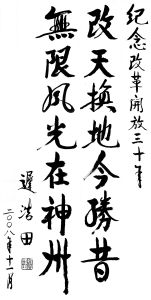 纪念改革開放三十年
改天換地今勝昔
無限风光在神州
遲浩田
二〇〇八年十一月